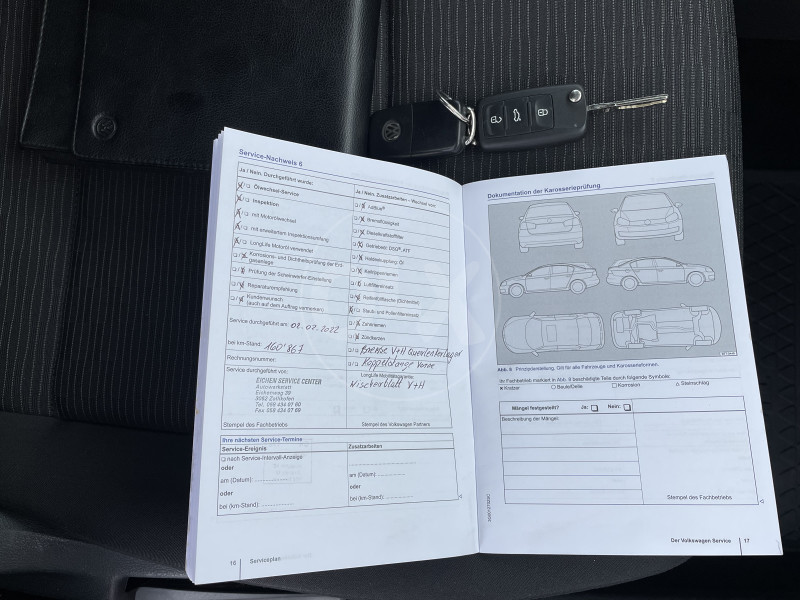 Service-Nachweis 6
Ja / Nein. Durchgeführt wurde:
Ölwechsel-Service
Inspektion
mit Motorölwechsel
mit erweitertem Inspektionsumfang
LongLife Motoröl verwendet
Korrosions- und Dichtheitsprüfung der Erdgasanlage
Prüfung der Scheinwerfer-Einstellung
Reparaturempfehlung
Kundenwunsch
(auch auf dem Auftrag vermerken)
Service durchgeführt am: 02.02.2022
bei km-Stand: 160'867
Rechnungsnummer:
Service durchgeführt von:
EICHEN SERVICE CENTER
Autowerkstatt
Eichenweg
3052 Zollikofen
Stempel des Fachbetriebs
Ja / Nein. Zusatzarbeiten – Wechsel von:
Haldex®
Bremsflüssigkeit
Dieselkraftstofffilter
Getriebeöl: DSG®, ATF
Haldexkupplung: Öl
Keilrippenriemen
Luftfiltereinsatz
Reifenfüllflasche (Dichtmittel)
Staub- und Pollenfiltereinsatz
Zahnriemen
Zündkerzen
Bremse V+H Querlenkerlager
Koppelstange Vorne
LongLife Mobilitätsgarantie:
Wischerblatt V+H
Stempel des Volkswagen Partners
Ihre nächsten Service-Termine
Service-Ereignis
Zusatzarbeiten
nach Service-Intervall-Anzeige
oder
am (Datum):
oder
bei (km-Stand):
am (Datum):
oder
bei (km-Stand):
16
Serviceplan
Dokumentation der Karosserieprüfung
Abb. 6 Prinzipdarstellung. Gilt für alle Fahrzeuge und Karosserieformen.
Ihr Fachbetrieb markiert in Abb. 6 beschädigte Teile durch folgende Symbole:
Kratzer
Beule/Delle
Korrosion
Steinschlag
Mängel festgestellt? Ja: Nein:
Beschreibung der Mängel:
Stempel des Fachbetriebs
Der Volkswagen Service
17